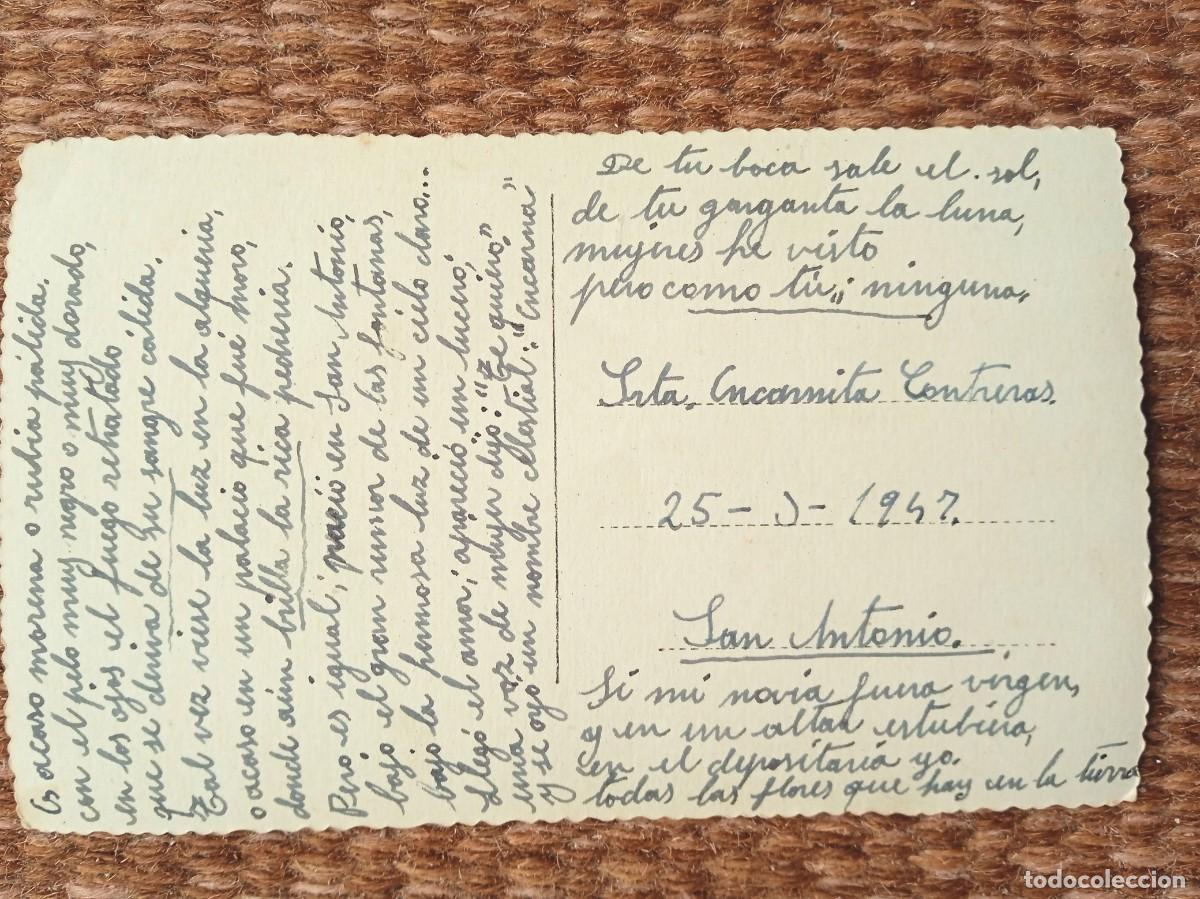 Es acaso morena o rubia pálida.
con el pelo muy negro o muy dorado,
en los ojos el fuego retratado
que se deriva de su sangre cálida.
Tal vez viese la luz en la alqueria,
o acaso en un palacio que fué moro,
donde aún brilla la rica pedreria.
Pero es igual; nació en San Antonio,
bajo el gran rumor de las fontanas,
bajo la hermosa luz de un cielo claro...
Llegó el amor; apareció un lucero;
una voz de mujer dijo: "Te quiero"
y se oyó un nombre celestial: "Encarna"
De tu boca sale el sol,
de tu garganta la luna,
mujeres he visto
pero como tú,, ninguna.
Srta. Encarnita Contreras.
25-3-1947.
San Antonio.
Si mi novia fuera virgen,
y en un altar estubiera,
en el depositaria yo.
todas las flores que hay en la tierra
todocoleccion